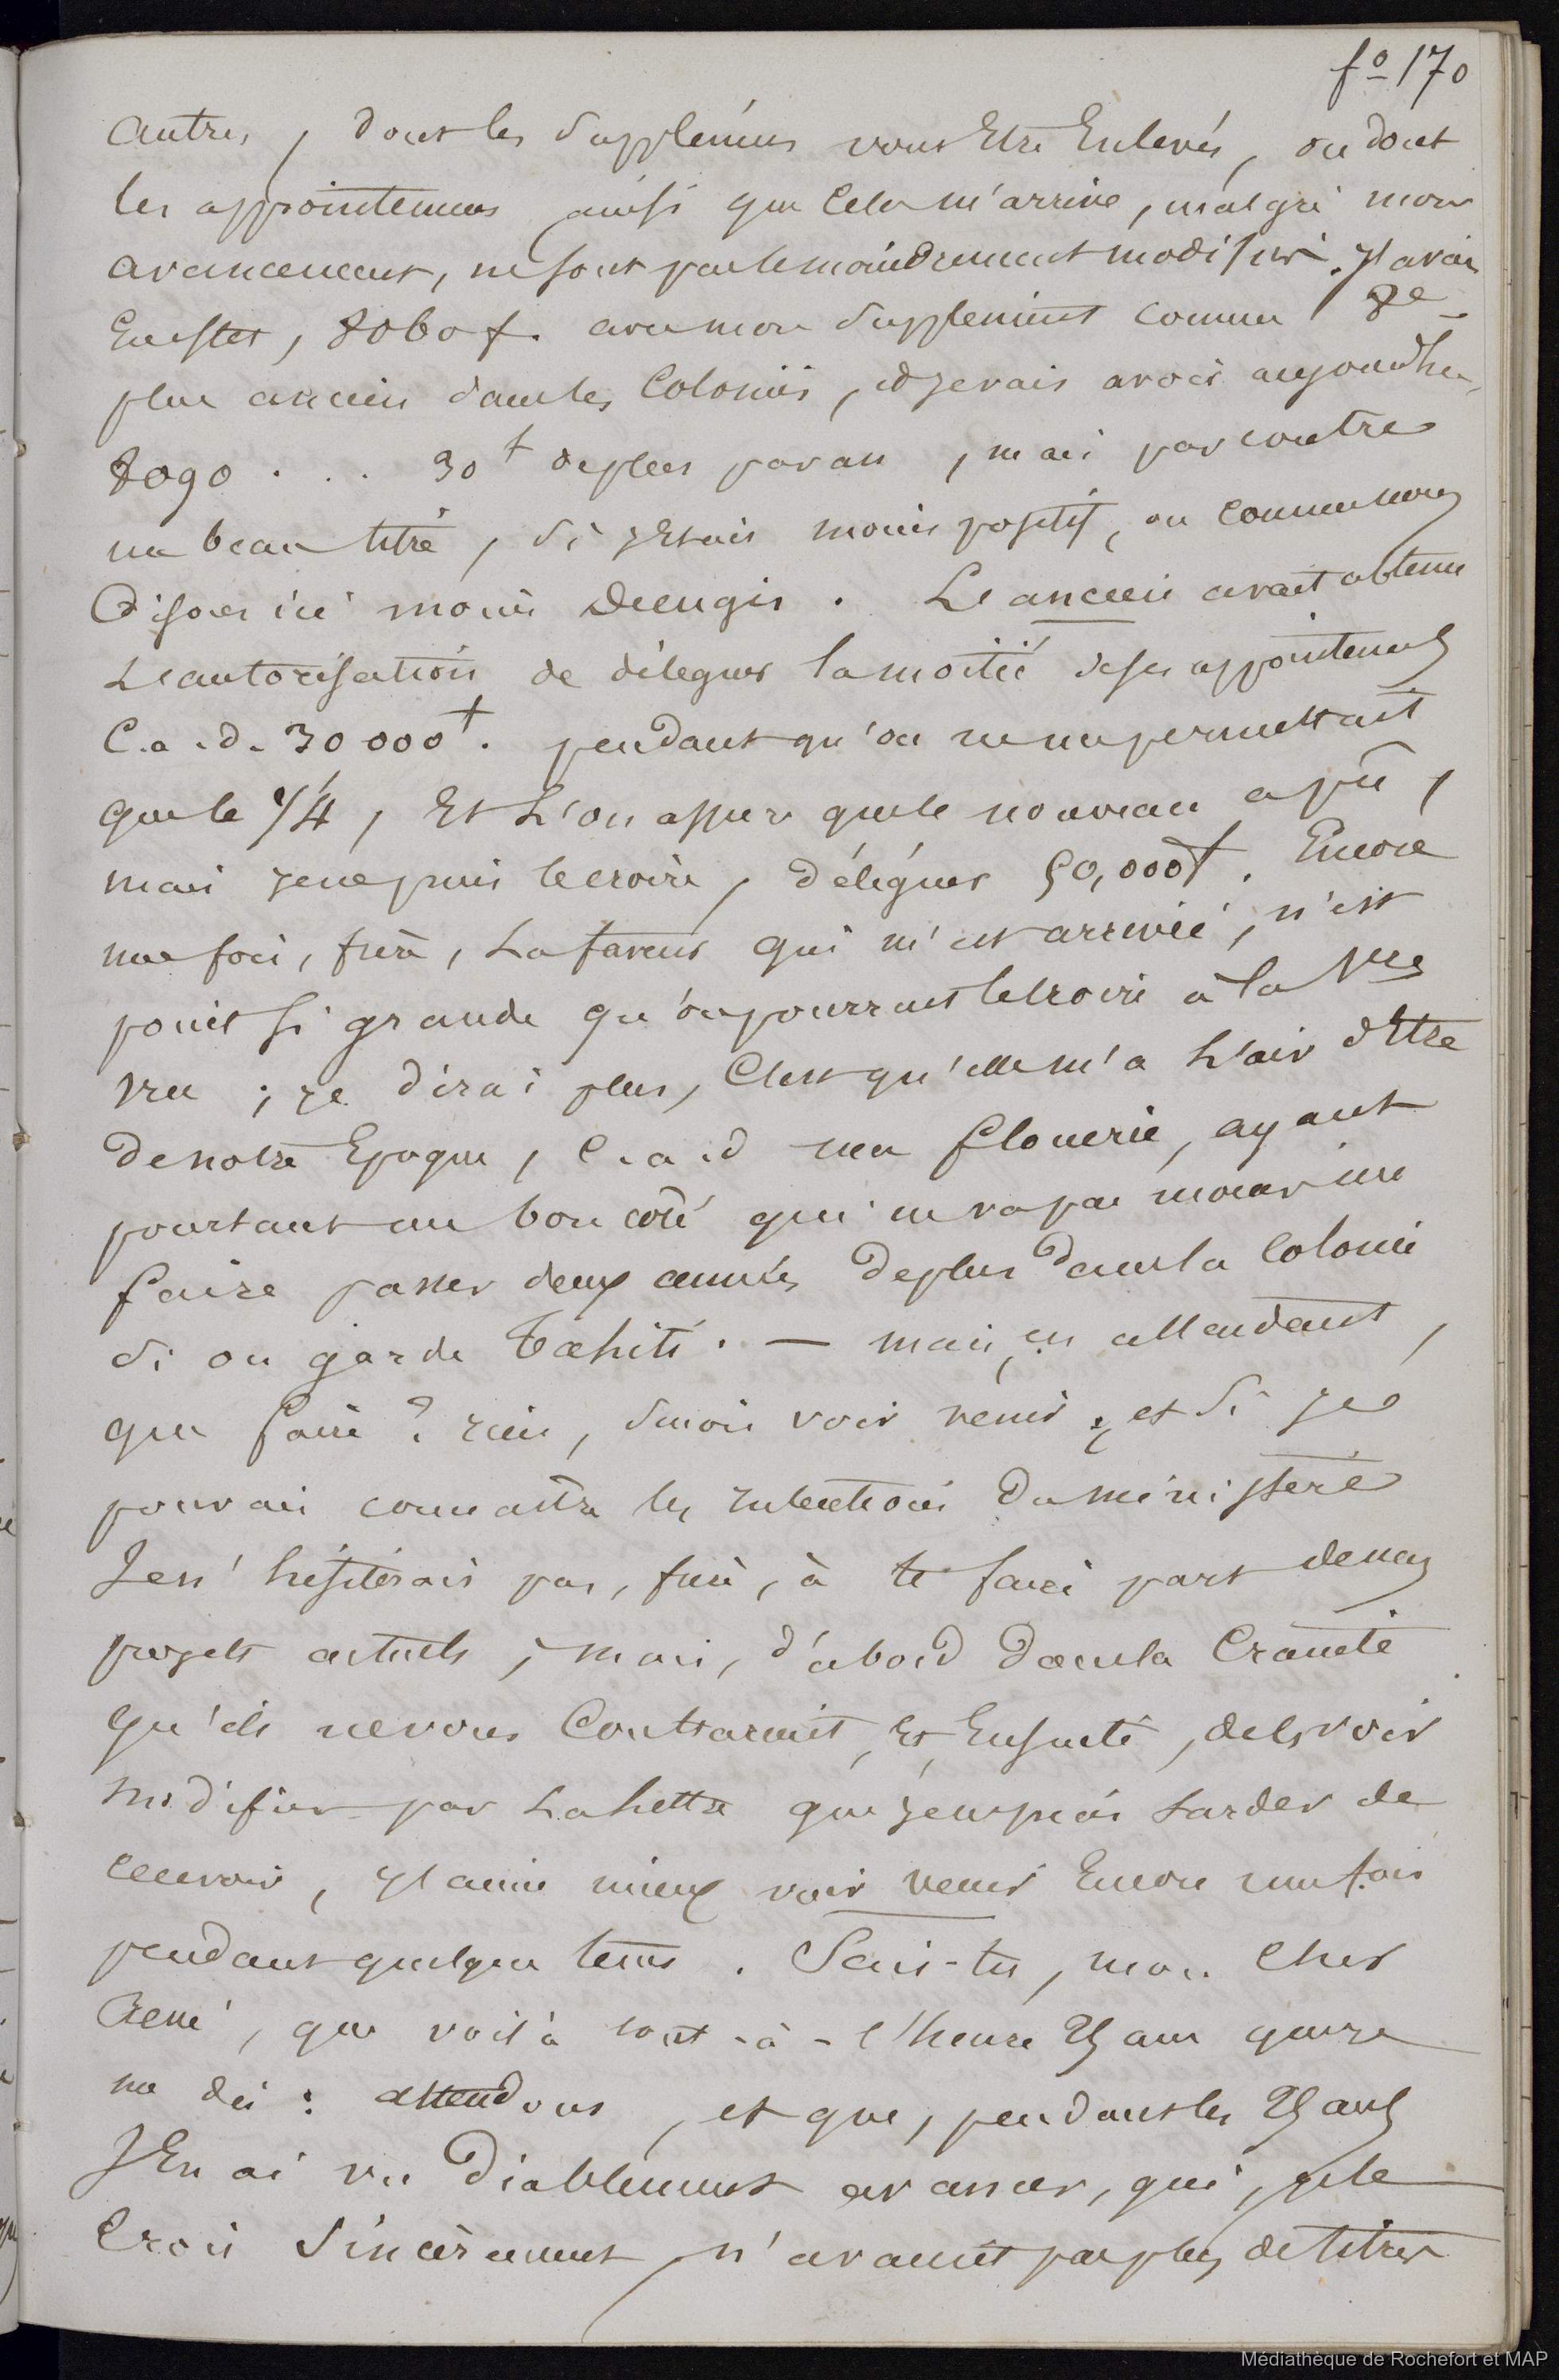 fo 170
autres, dont les supplémens vont Etre Enlevés, ou dont
les appointemens ainsi que Cela m'arrive, malgré mon
avancement, ne sont pas le moindrement modifiés. J'avais
En effet, 8060 f. avec mon Supplement comme
plus ancien dans les Colonies, et je vais avoir aujourd'hui
8090 . . . 30 f de plus par an, mais par contre
un beau titre, Si j'Etais moins positif, on commence
ici moins . Le ancien avait obtenu
L'autorisation de déléguer la moitié de ses appointemens
C.a.d. 30000 f. pendant qu'on ne me permettait
que le 1/4, Et L'on assure que le nouveau a pû,
mais je ne puis le croire, déléguer 50,000 f. Encore
une fois, frère, La faveur qui m'est arrivée, n'est
point si grande qu'on pourrait le croire à la 1re
vue ; je dirai plus, C'est qu'elle m'a L'air d'Etre
de notre Epoque, C.a.d une flouerie, ayant
pourtant un bon côté qui me va pas mal
faire passer deux années de plus dans la Colonie
Si on garde Tahiti. — mais, en attendant,
que faire ? rien, Sinon voir venir ; et Si je
pouvais connaitre les intentions du ministère
Je n'hésiterais pas, frère, à te faire part de mes
projets actuels ; mais, d'abord dans la Crainte
qu'ils ne vous Contrarient, Et, Ensuite, de les voir
modifier par La lettre que je ne puis tarder de
recevoir, J'aime mieux voir venir Encore une fois
pendant quelque tems. Sais-tu, mon Cher
René, que voilà tout-à-l'heure 25 ans que je
me dis : attendons, et que, pendant les 25 ans
J'En ai vu Diablement avancer, qui, je le
Crois Sincèrement, n'avaient pas plus de titres
Médiathèque de Rochefort et MAP